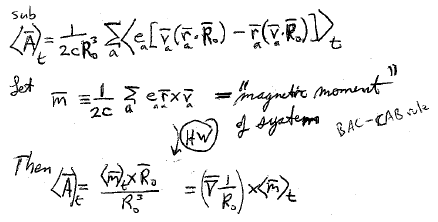 sub
⟨Ā⟩_t = 1/(2cR₀³) Σ_a ⟨e_a[v̄_a(r̄_a·R̄₀) − r̄_a(v̄_a·R̄₀)]⟩_t
Let m̄ ≡ 1/(2c) Σ_a e_a r̄_a × v̄_a = "magnetic moment"
of system
HW
BAC-CAB rule
Then
⟨Ā⟩_t = ⟨m̄⟩_t × R̄₀ / R₀³ = (∇̄ 1/R₀) × ⟨m̄⟩_t